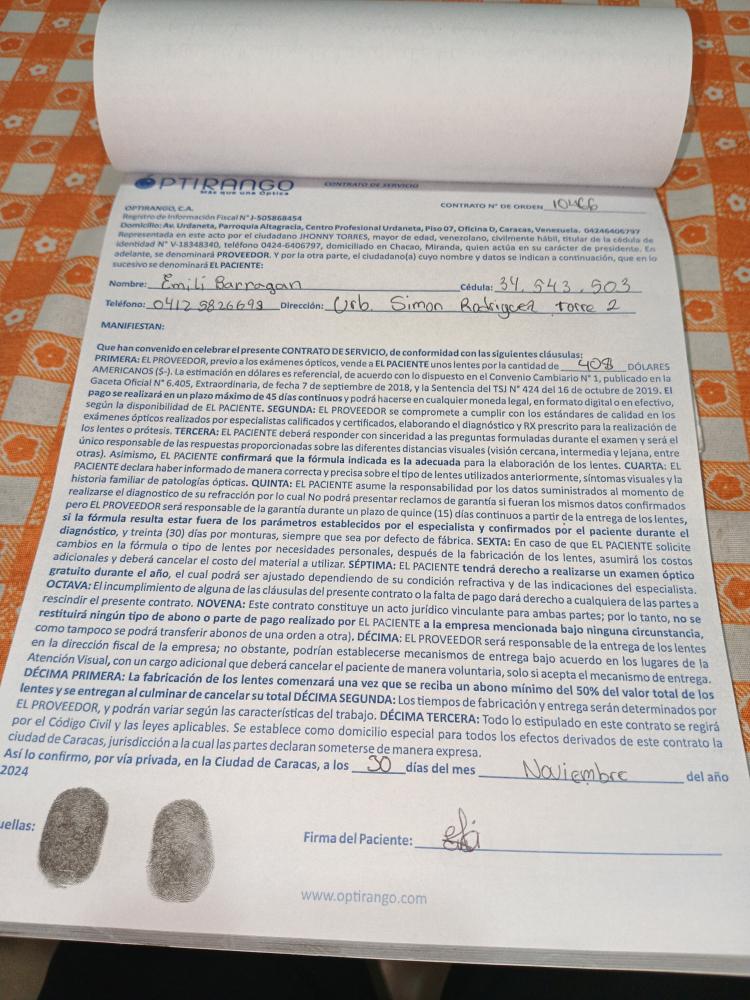 OPTIRANGO
Más que una Óptica
CONTRATO DE SERVICIO
CONTRATO N° DE ORDEN 10466
OPTIRANGO, C.A.
Registro de Información Fiscal N° J-505868454
Domicilio: Av. Urdaneta, Parroquia Altagracia, Centro Profesional Urdaneta, Piso 07, Oficina D, Caracas, Venezuela. 04246406797
Representada en este acto por el ciudadano JHONNY TORRES, mayor de edad, venezolano, civilmente hábil, titular de la cédula de
identidad N° V-18348340, teléfono 0424-6406797, domiciliado en Chacao, Miranda, quien actúa en su carácter de presidente. En
adelante, se denominará PROVEEDOR. Y por la otra parte, el ciudadano(a) cuyo nombre y datos se indican a continuación, que en lo
sucesivo se denominará EL PACIENTE:
Nombre: Emili Barragan Cédula: 34.543.503
Teléfono: 0412 5826698 Dirección: Urb. Simon Rodriguez torre 2
MANIFIESTAN:
Que han convenido en celebrar el presente CONTRATO DE SERVICIO, de conformidad con las siguientes cláusulas:
PRIMERA: EL PROVEEDOR, previo a los exámenes ópticos, vende a EL PACIENTE unos lentes por la cantidad de 408 DÓLARES
AMERICANOS ($-). La estimación en dólares es referencial, de acuerdo con lo dispuesto en el Convenio Cambiario N° 1, publicado en la
Gaceta Oficial N° 6.405, Extraordinaria, de fecha 7 de septiembre de 2018, y la Sentencia del TSJ N° 424 del 16 de octubre de 2019. El
pago se realizará en un plazo máximo de 45 días continuos y podrá hacerse en cualquier moneda legal, en formato digital o en efectivo,
según la disponibilidad de EL PACIENTE. SEGUNDA: EL PROVEEDOR se compromete a cumplir con los estándares de calidad en los
exámenes ópticos realizados por especialistas calificados y certificados, elaborando el diagnóstico y RX prescrito para la realización de
los lentes o prótesis. TERCERA: EL PACIENTE deberá responder con sinceridad a las preguntas formuladas durante el examen y será el
único responsable de las respuestas proporcionadas sobre las diferentes distancias visuales (visión cercana, intermedia y lejana, entre
otras). Asimismo, EL PACIENTE confirmará que la fórmula indicada es la adecuada para la elaboración de los lentes. CUARTA: EL
PACIENTE declara haber informado de manera correcta y precisa sobre el tipo de lentes utilizados anteriormente, síntomas visuales y la
historia familiar de patologías ópticas. QUINTA: EL PACIENTE asume la responsabilidad por los datos suministrados al momento de
realizarse el diagnostico de su refracción por lo cual No podrá presentar reclamos de garantía si fueran los mismos datos confirmados
pero EL PROVEEDOR será responsable de la garantía durante un plazo de quince (15) días continuos a partir de la entrega de los lentes,
si la fórmula resulta estar fuera de los parámetros establecidos por el especialista y confirmados por el paciente durante el
diagnóstico, y treinta (30) días por monturas, siempre que sea por defecto de fábrica. SEXTA: En caso de que EL PACIENTE solicite
cambios en la fórmula o tipo de lentes por necesidades personales, después de la fabricación de los lentes, asumirá los costos
adicionales y deberá cancelar el costo del material a utilizar. SÉPTIMA: EL PACIENTE tendrá derecho a realizarse un examen óptico
gratuito durante el año, el cual podrá ser ajustado dependiendo de su condición refractiva y de las indicaciones del especialista.
OCTAVA: El incumplimiento de alguna de las cláusulas del presente contrato o la falta de pago dará derecho a cualquiera de las partes a
rescindir el presente contrato. NOVENA: Este contrato constituye un acto jurídico vinculante para ambas partes; por lo tanto, no se
restituirá ningún tipo de abono o parte de pago realizado por EL PACIENTE a la empresa mencionada bajo ninguna circunstancia,
como tampoco se podrá transferir abonos de una orden a otra). DÉCIMA: EL PROVEEDOR será responsable de la entrega de los lentes
en la dirección fiscal de la empresa; no obstante, podrían establecerse mecanismos de entrega bajo acuerdo en los lugares de la
Atención Visual, con un cargo adicional que deberá cancelar el paciente de manera voluntaria, solo si acepta el mecanismo de entrega.
DÉCIMA PRIMERA: La fabricación de los lentes comenzará una vez que se reciba un abono mínimo del 50% del valor total de los
lentes y se entregan al culminar de cancelar su total DÉCIMA SEGUNDA: Los tiempos de fabricación y entrega serán determinados por
EL PROVEEDOR, y podrán variar según las características del trabajo. DÉCIMA TERCERA: Todo lo estipulado en este contrato se regirá
por el Código Civil y las leyes aplicables. Se establece como domicilio especial para todos los efectos derivados de este contrato la
ciudad de Caracas, jurisdicción a la cual las partes declaran someterse de manera expresa.
Así lo confirmo, por vía privada, en la Ciudad de Caracas, a los 30 días del mes Noviembre del año
2024
uellas:
Firma del Paciente:
www.optirango.com